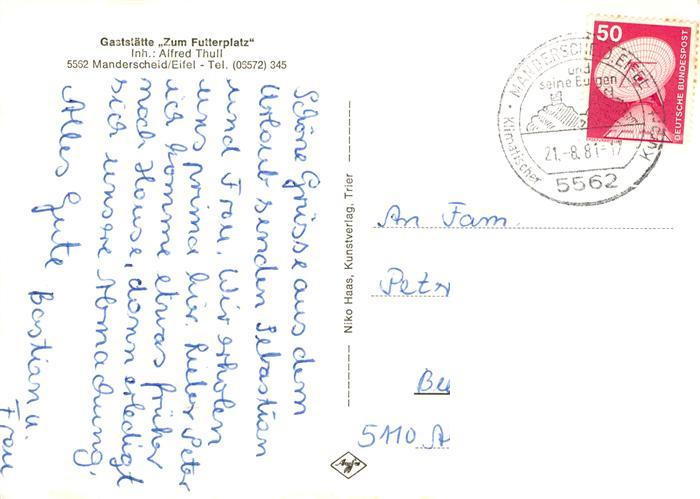 Gaststätte „Zum Futterplatz“
Inh.: Alfred Thull
5562 Manderscheid/Eifel - Tel. (06572) 345
Schöne Grüsse aus dem
Urlaub senden Sebastian
und Frau. Wir erholen
uns prima hier. Lieber Peter
ich komme etwas früher
nach Hause, dann erledigt
sich unsere Abmachung.
Alles Gute Bastian u.
Frau
Niko Haas, Kunstverlag, Trier
Agfa
50
DEUTSCHE BUNDESPOST
MANDERSCHEID, EIFEL
und
seine Burgen
Klimatischer
21.-8.81-17
5562
An Fam.
Petr
Be
5110 A